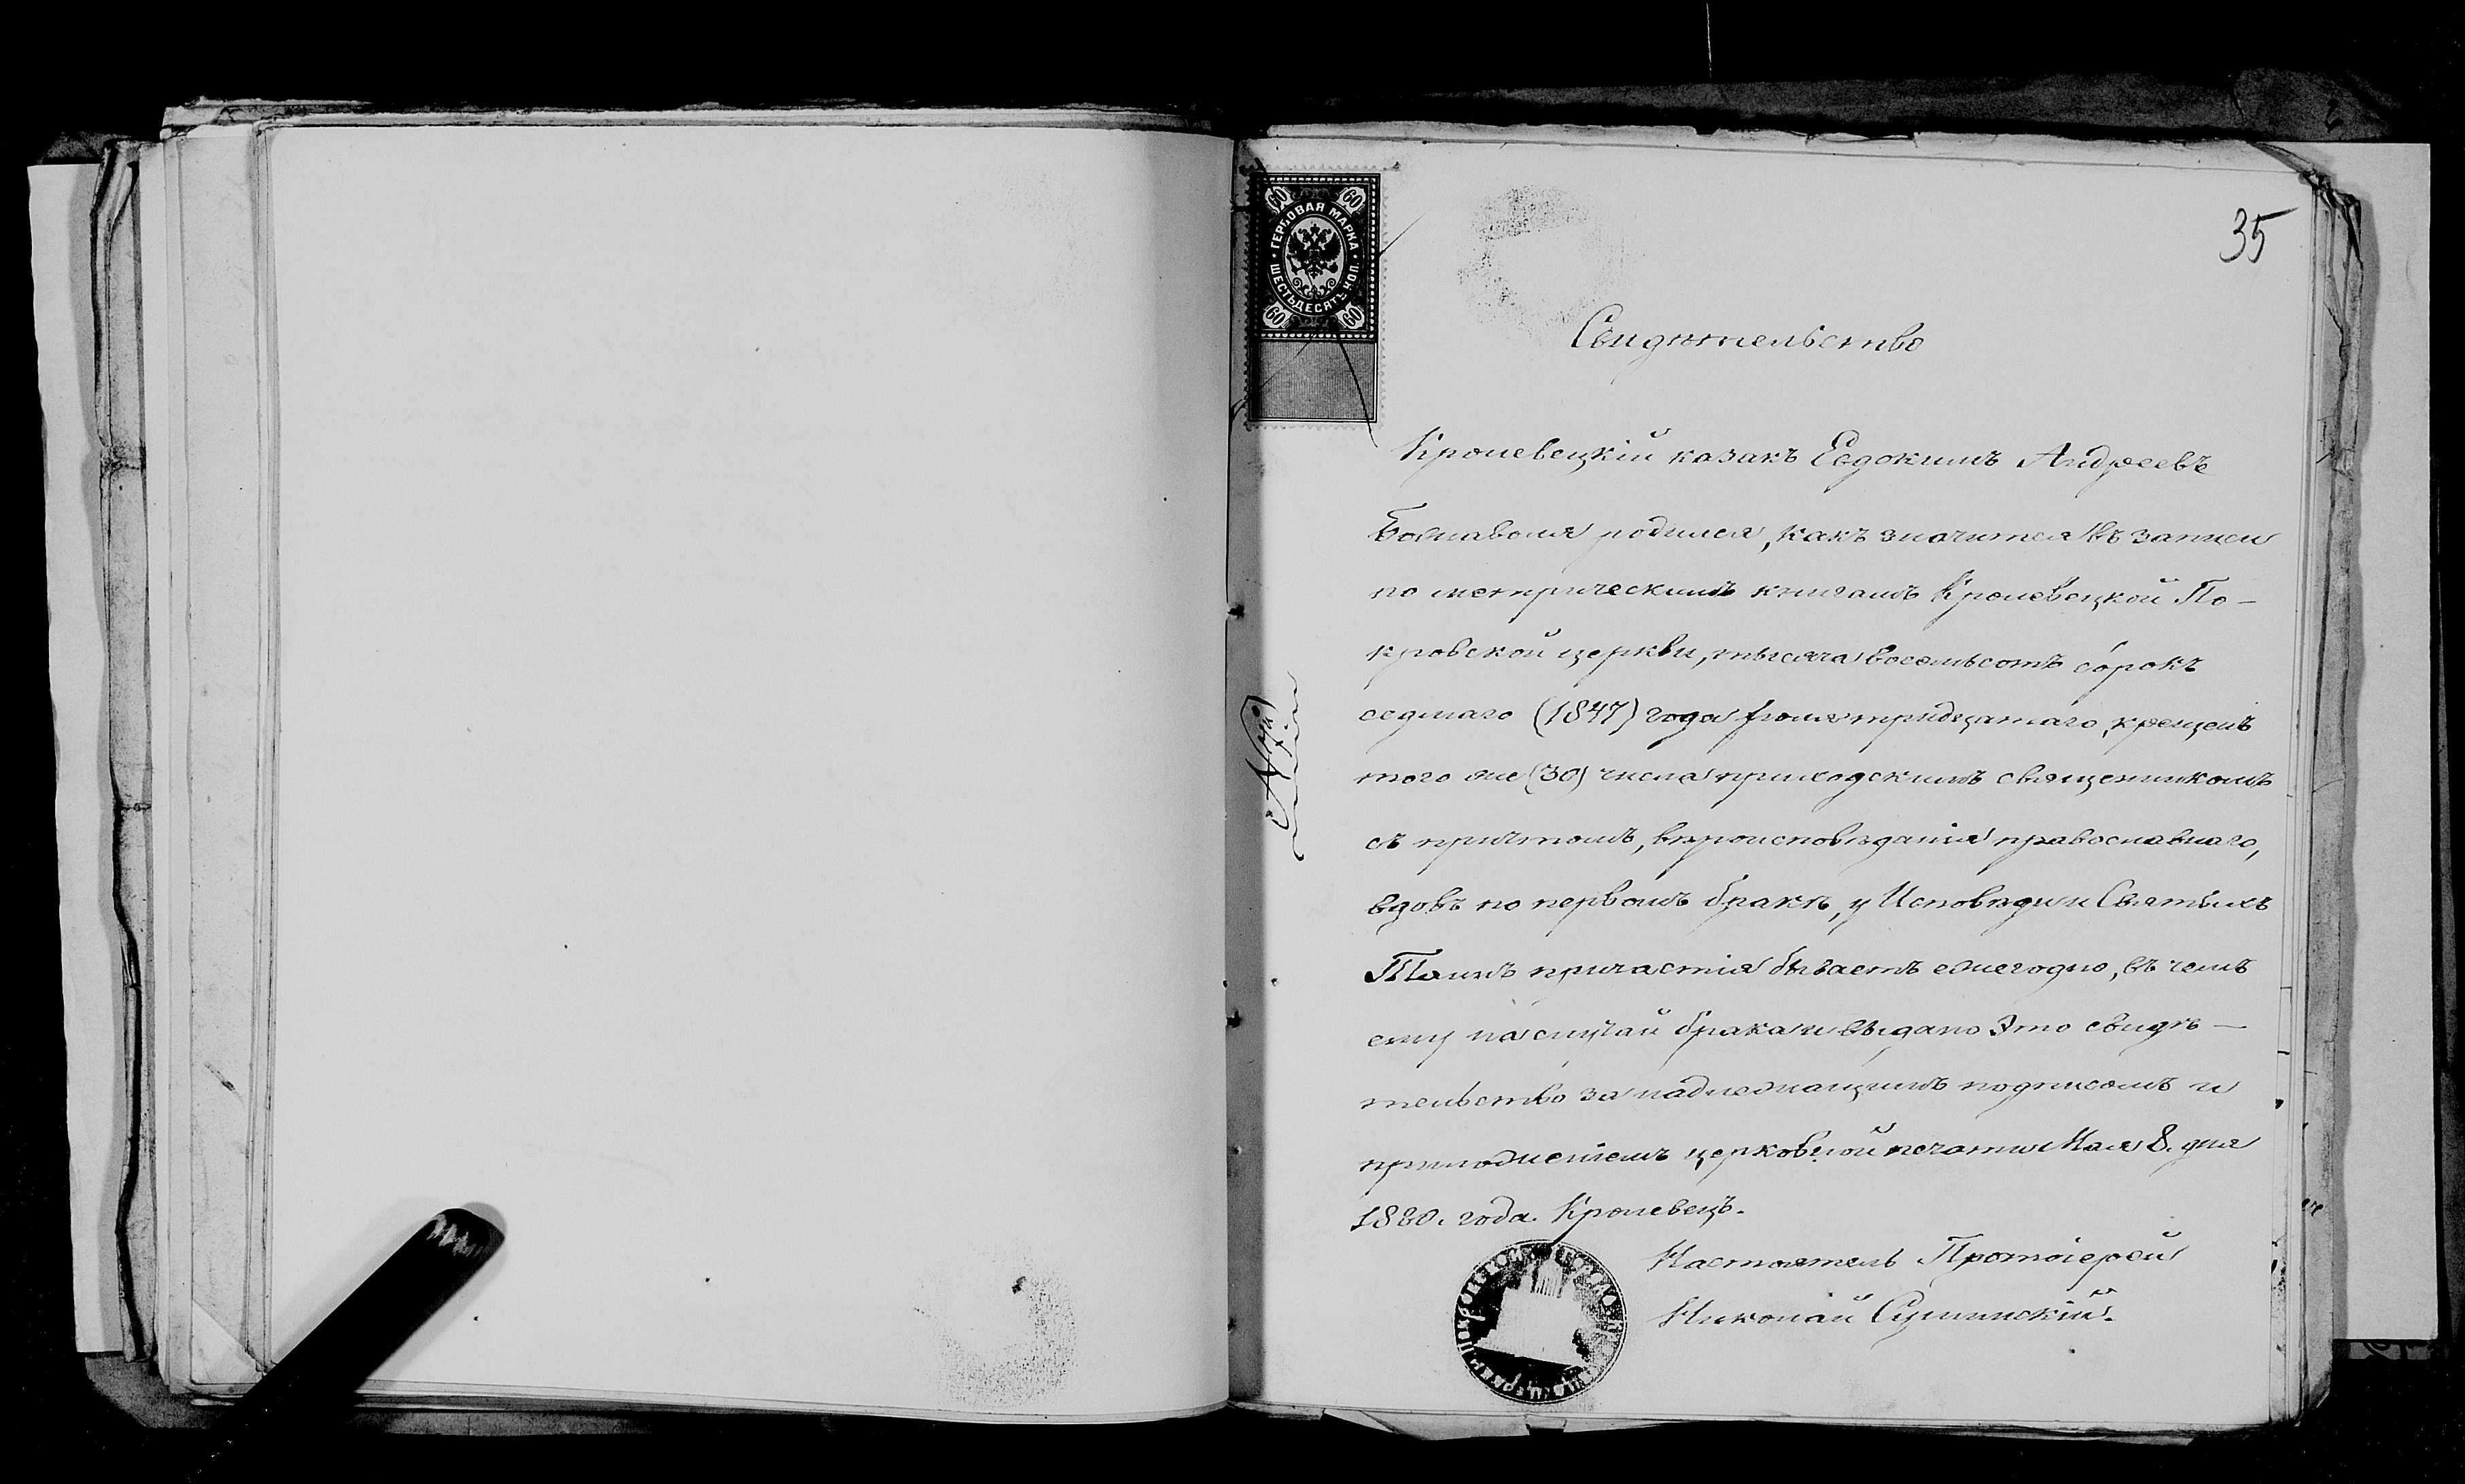 35
ГЕРБОВАЯ МАРКА
ШЕСТЬДЕСЯТЪ КОП.
60 60
60 60
Свидѣтельство
Кролевецкій казакъ Евдокимъ Андреевъ
родился, какъ значится въ записи
по метрическимъ книгамъ Кролевецкой По-
кровской церкви, тысяча восемьсотъ сорокъ
седмаго (1847) года іюля тридцатаго, крещенъ
того же (30) числа приходскимъ священникомъ
съ причтомъ, вѣроисповѣданія православнаго,
вдовъ по первомъ бракѣ, у Исповѣди и Святыхъ
Таинъ причастія бываетъ ежегодно, въ чемъ
ему на случай брака и выдано это свидѣ-
тельство за надлежащимъ подписомъ и
приложеніемъ церковной печати Мая 8. дня
1880. года. Кролевецъ.
Настоятель Протоіерей
Николай